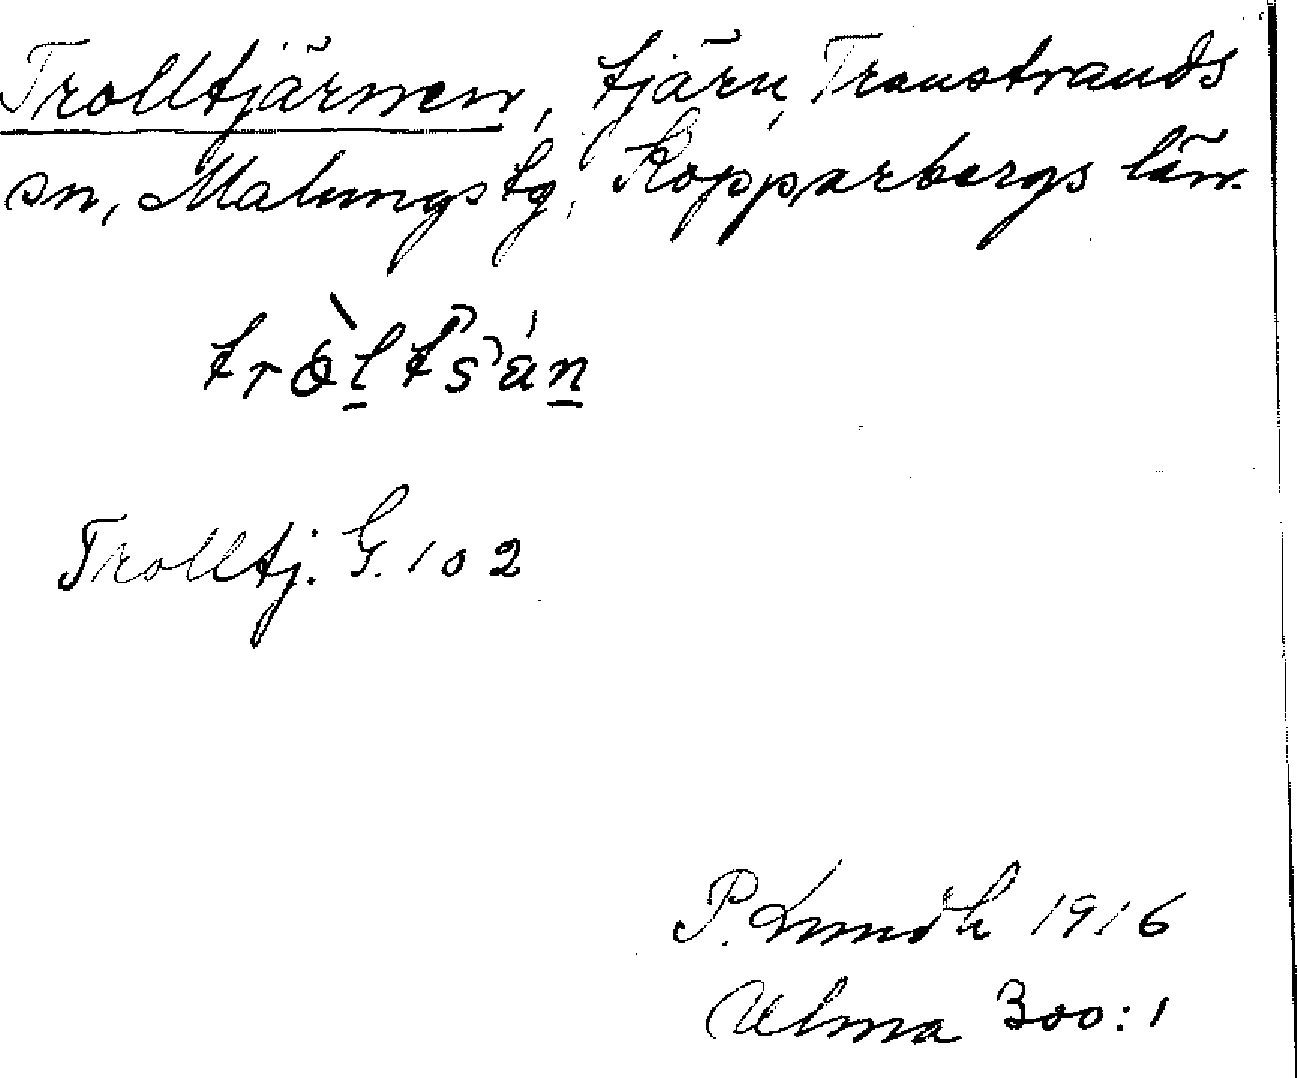 Trolltjärnen, tjärn, Transtrands
sn, Malungs tg, Kopparbergs län.
Trolltj. G. 102
P. Lundh 1916
Ulma 300:1